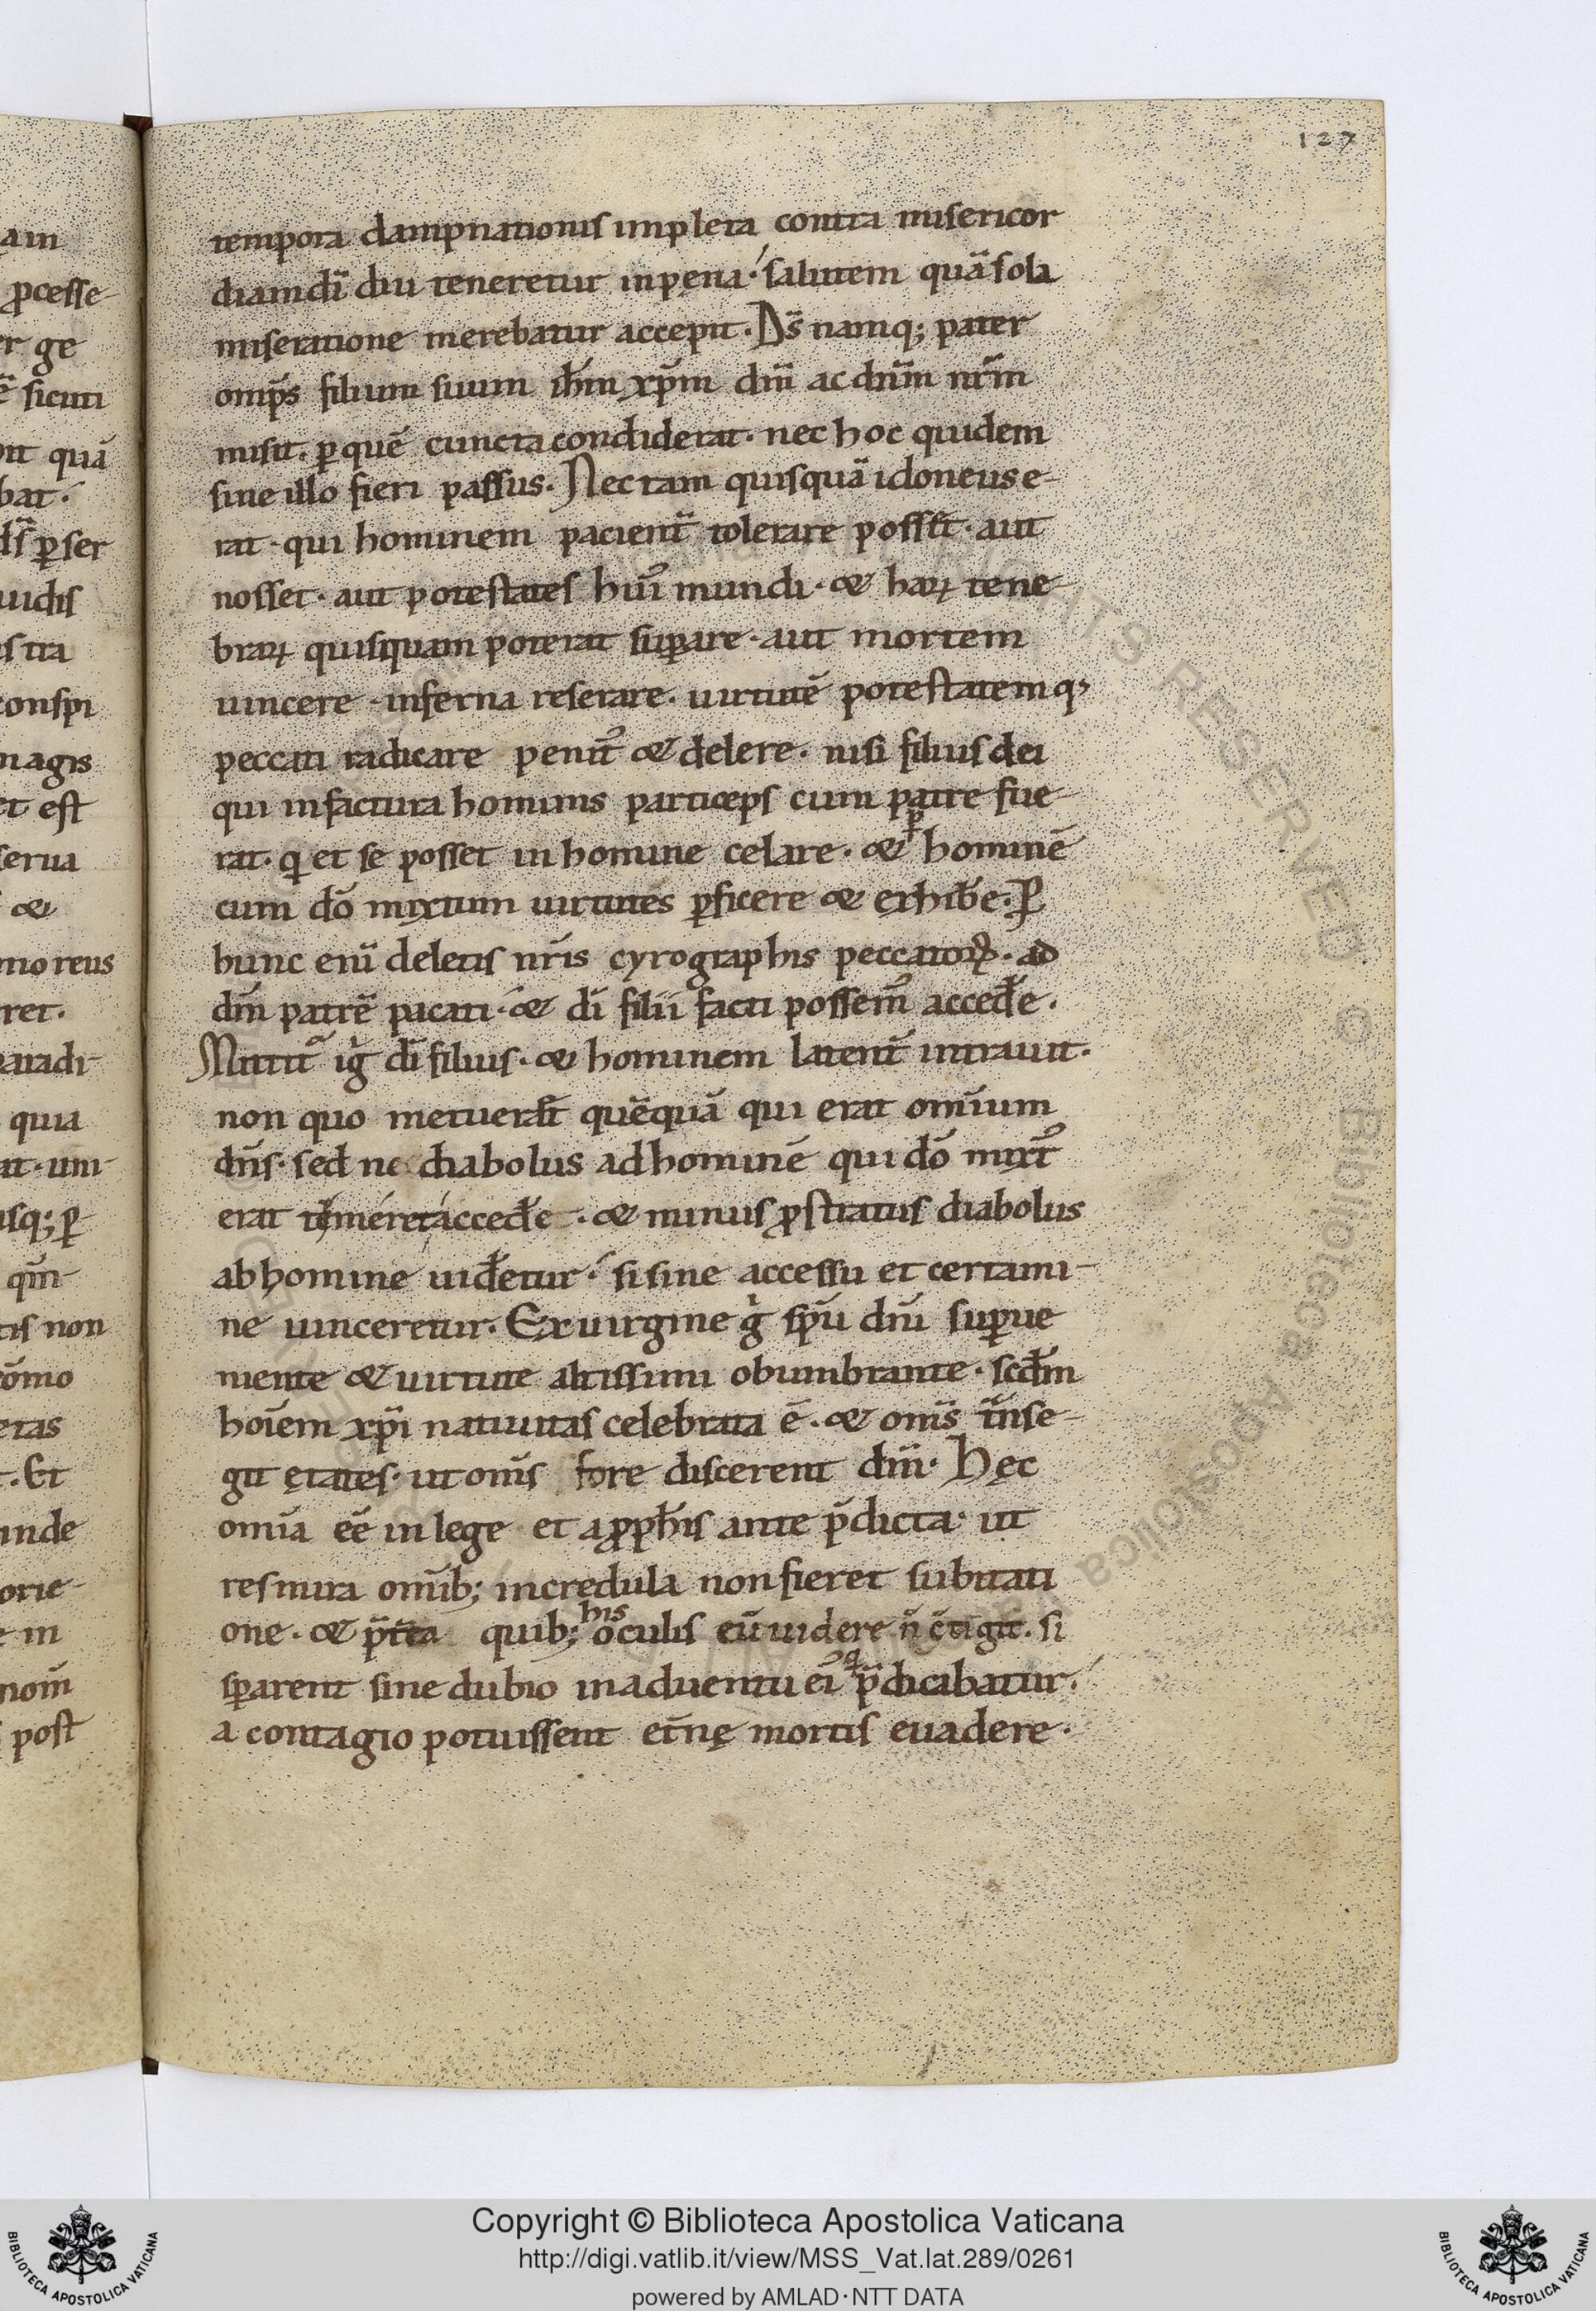 127
tempora dampnationis impleta contra misericor
diam dī diu teneretur in pęna·́ salutem quā sola
miseratione merebatur accepit. D̄s namq; pater
omp̄s filium suum ih̄m xp̄m dm̄ ac dn̄m nr̄m
misit. ꝑ quē cuncta condiderat. nec hoc quidem
sine illo fieri passus. Nec tam quisquā idoneus e-
rat. qui hominem pacient̄ tolerare poss&̄. aut
nosset. aut potestates hui᷒ mundi. & haꝝ tene-
braꝝ quisquam poterat suꝑare. aut mortem
uincere. inferna reserare. uirtutē potestatemq;
peccati radicare penit᷒ & delere. nisi filius dei
qui in factura hominis particeps cum patre fue-
rat. q et se posset in homine celare. & ꝑ hominē
cum dō mixtum uirtutes ꝑficere & exhibe. ꝑ
hunc enī deletis nr̄is cyrographis peccatoꝝ. ad
dm̄ patrē pacati. & dī filii facti possem᷒ acced̄e.
Mittit᷑ ig̅ dī filius. & hominem latent̄ intrauit.
non quo metuerat quēquā qui erat omīum
dn̄s. sed ne diabolus ad hominē qui dō mixt᷒
erat accede. & minus ꝓstratus diabolus
ab homine uid̄etur·́ si sine accessu et certami-
ne uinceretur. Ex uirgine g̅ spū dn̄i suꝑue
niente & uirtute altissimi obumbrante. scd̄m
hoīem xp̄i natiuitas celebrata ē. & om̄s t̄nse-
git ętates. ut om̄s fore discerent dm̄. Hęc
omīa eē in lege et a ꝓph̄is ante p̄dicta. ut
res mira om̄ib; incredula non fieret subitati
one. & p̄t̄ea quib; his oculis eū uidere n̄ c̄tigit. si
sꝑarent sine dubio in aduentu ei᷒ q p̄dicabatur·́
a contagio potuissent et̄nę mortis euadere.
am
ꝓcesse-
er ge
sicuti
quā
bat.
ꝑ ser
uidis
ita
conspi
magis
est
serua
&
mo reus
ret.
paradi-
quia
uni-
isq; ꝑ
qm̄
non
eras
Et
unde
orie-
in
nom̄
post
Copyright © Biblioteca Apostolica Vaticana
http://digi.vatlib.it/view/MSS_Vat.lat.289/0261
powered by AMLAD·NTT DATA
BIBLIOTECA APOSTOLICA VATICANA
BIBLIOTECA APOSTOLICA VATICANA